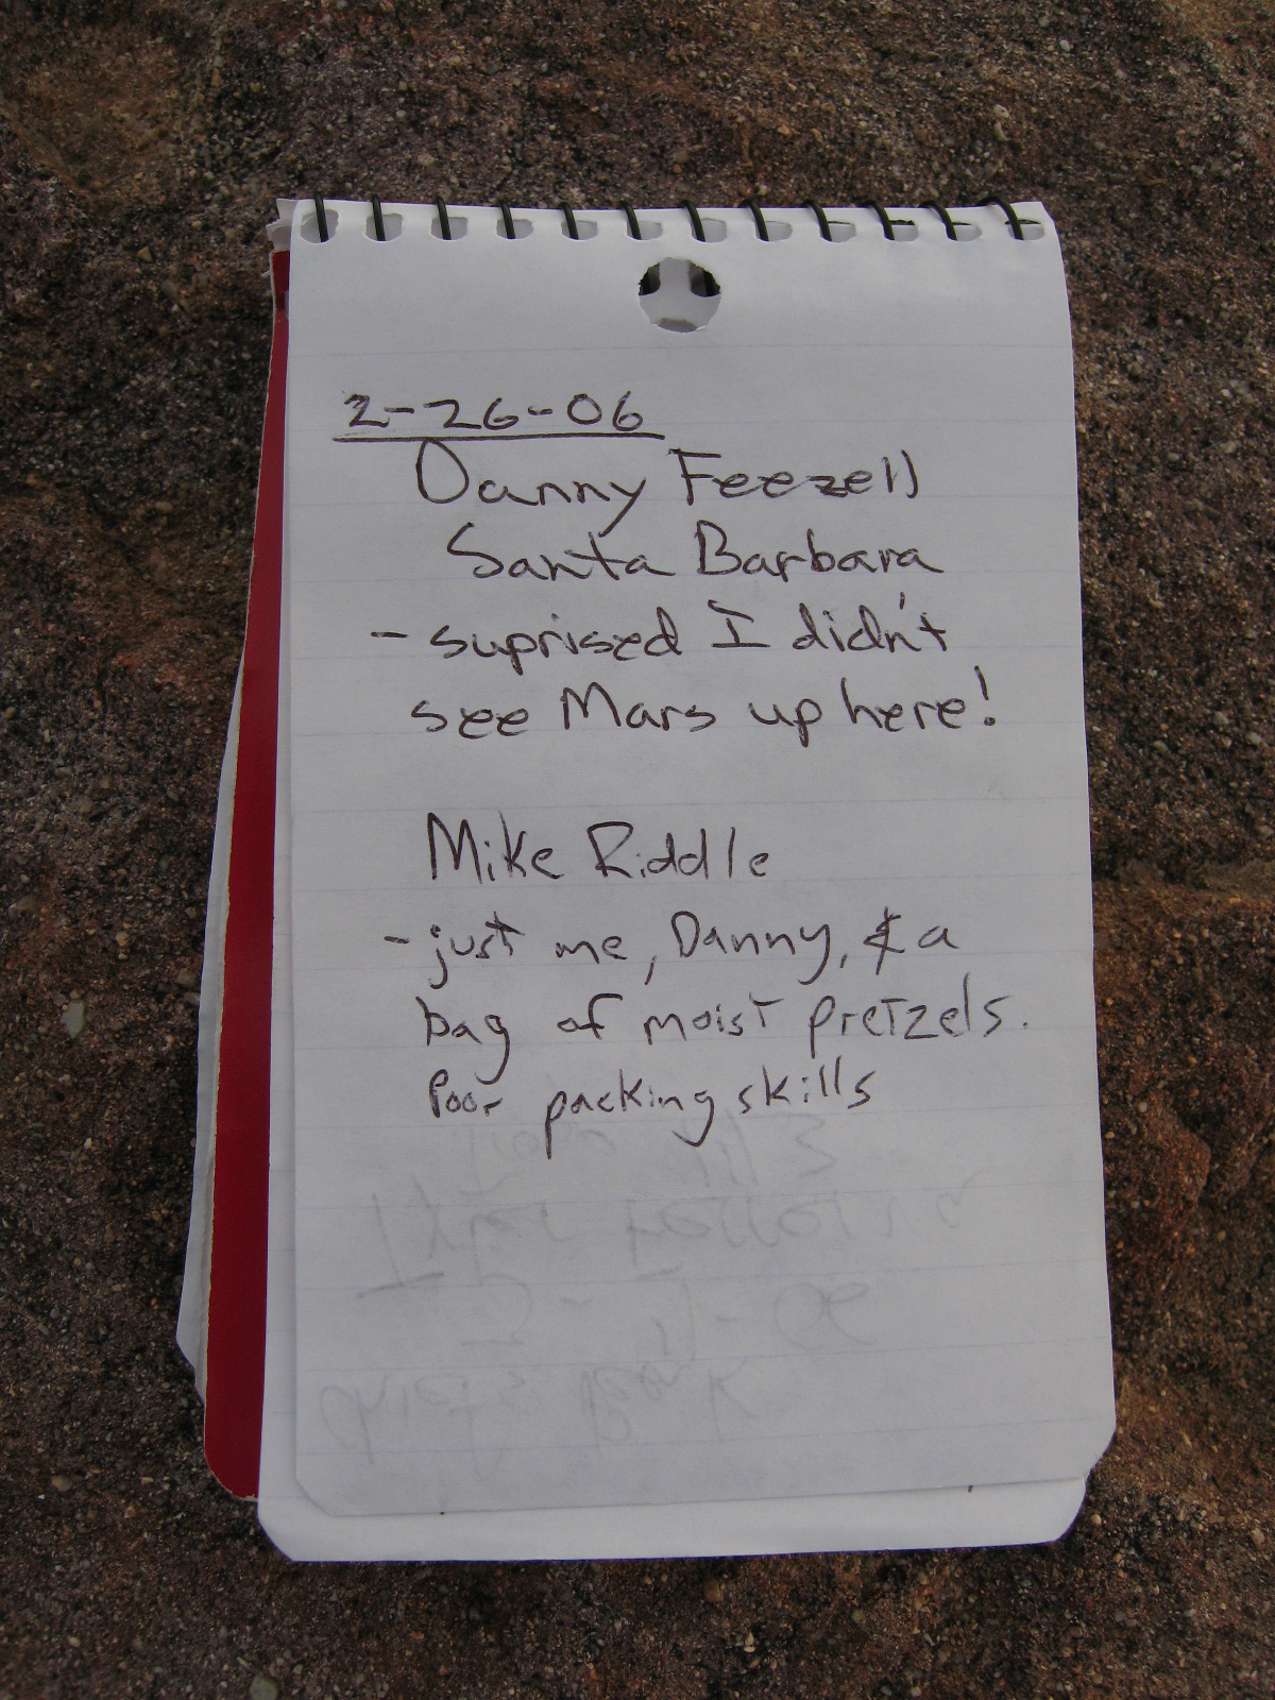 2-26-06
Danny Feezell
Santa Barbara
- suprised I didn't
see Mars up here!
Mike Riddle
- just me, Danny, & a
bag of moist pretzels.
Poor packing skills